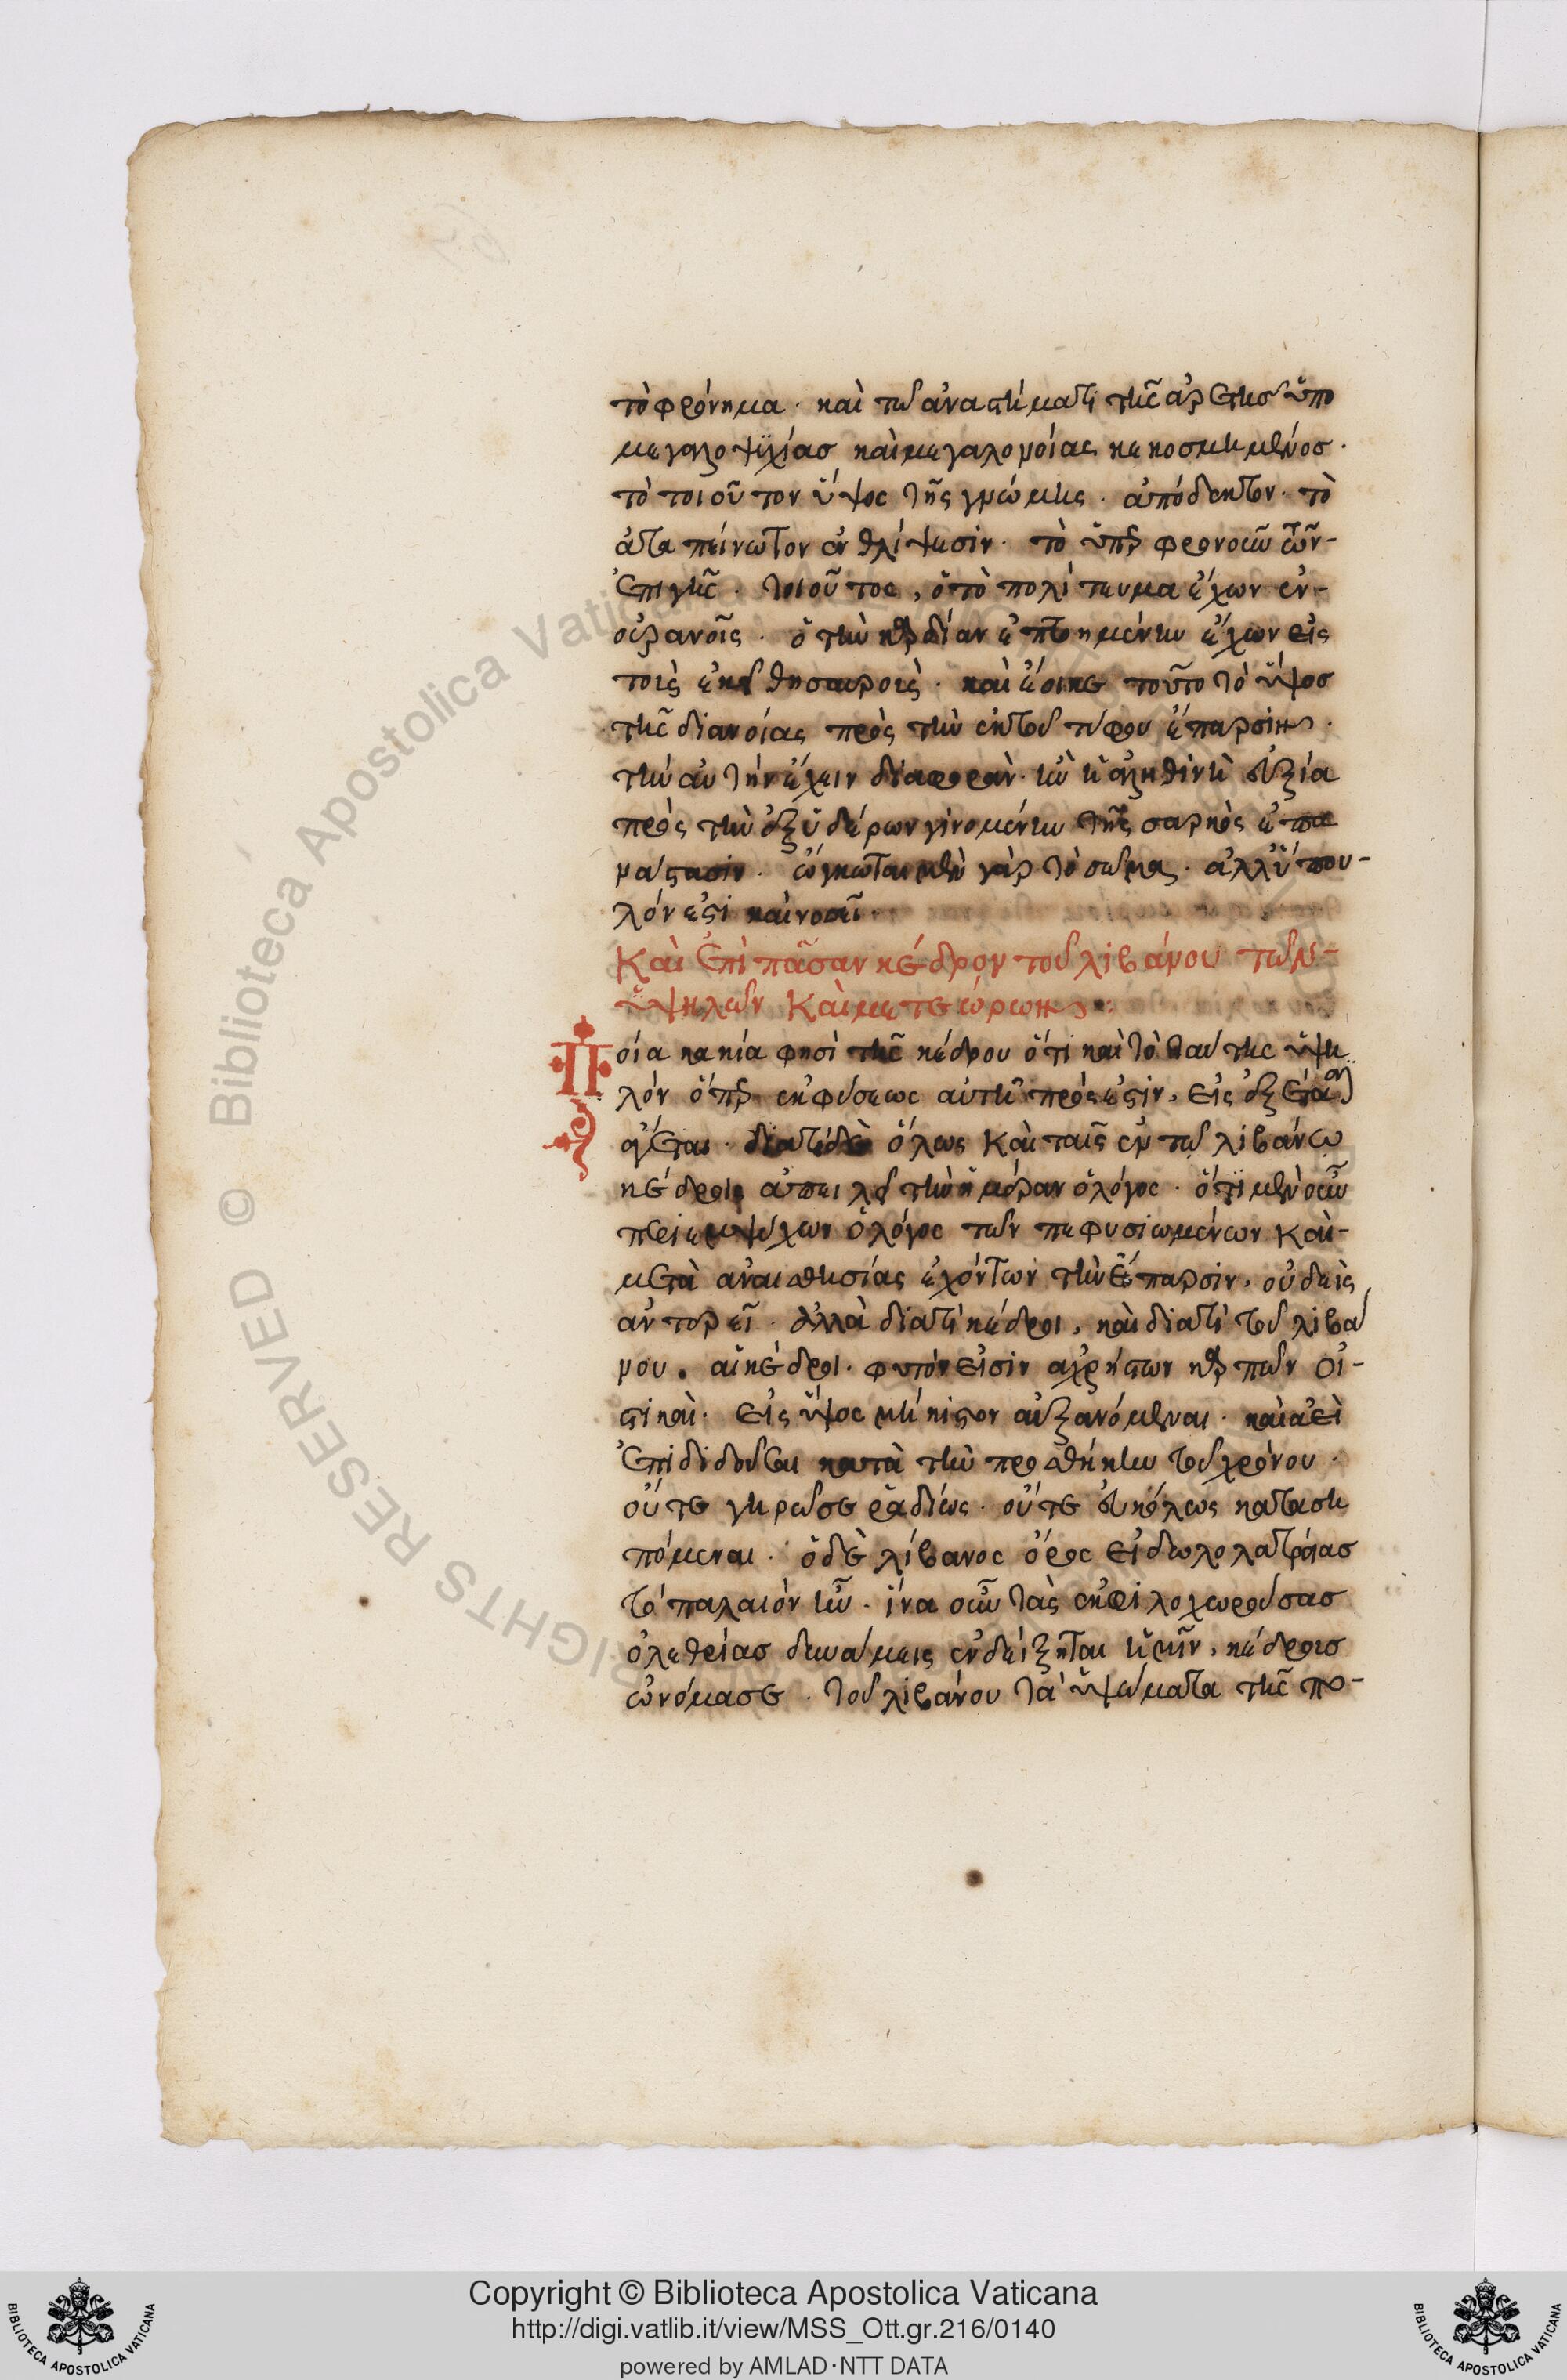 τὸ φρόνημα · καὶ τῶ ἀναστήματι τῆς ἀρετῆσ ὑπο
μεγαλοψυχίασ καὶ μεγαλονοίας κεκοσμημένοσ ·
τὸ τοιοῦτον ὕψος τῆς γνώμης · ἀπόδεκτον · τὸ
ἀταπείνωτον ἐν θλίψεσιν · τὸ ὑπερφρονοῦν τῶν-
ἐπι γῆς · τοιοῦτος, ὁ τὸ πολίτευμα ἔχων ἐν-
οὐρανοῖς · ὁ τὴν καρδίαν ἐπτοημένην ἔχων εἰς
τοὺς ἐκεῖ θησαυροὺς · καὶ ἔοικε τοῦτο τὸ ὕψοσ
τῆς διανοίας πρὸς τὴν ἐκ τοῦ τύφου ἔπαρσιν ·
τὴν αὐτὴν ἔχειν διαφορὰν · ἣν ἡ ἀληθινὴ εὐεξία
πρὸς τὴν ἐξ ὑδέρων γινομένην τῆς σαρκὸς ἐπα
νάστασιν · ὤγκωται μὲν γὰρ τὸ σῶμα · ἀλλ' ὕπου-
λόν ἐστι καὶ νοσεῖ ·
Καὶ ἐπὶ πᾶσαν κέδρον τοῦ λιβάνου τῶν-
ὑψηλῶν καὶ μετεώρων ·
Ποία κακία φησὶ τῆς κέδρου ὅτι καὶ τὸ ταύτης ὑψη
λόν ὅπερ ἐκ φύσεως αὐτῇ πρόσεστιν, εἰς
ἄγεται · διατί δὲ ὅλως καὶ ταῖς ἐν τῶ λιβάνω
κέδροις ἀπειλεῖ τὴν ἡμέραν ὁ λόγος · ὅτι μὲν οὖν
περι ἐμψύχων ὁ λόγος τῶν πεφυσιωμένων καὶ-
μετὰ ἀναισθησίας ἐχόντων τὴν ἔπαρσιν, οὐδεὶς
ἀντερεῖ · ἀλλὰ διατί κέδροι, καὶ διατί τοῦ λιβά
νου · αἱ κέδροι · φυτόν εἰσιν ἀχρήστων καρπῶν οἰ-
στικαὶ · εἰς ὕψος μήκιστον αὐξανόμεναι · καὶ ἀεὶ
ἐπιδιδοῦσαι κατὰ τὴν προσθήκην τοῦ χρόνου ·
οὔτε γηρῶσαι ῥαδίως · οὔτε εὐκόλως κατασκη
πόμεναι · ὁ δὲ λίβανος ὄρος εἰδωλολατρείασ
τὸ παλαιὸν ἦν · ἵνα οὖν τὰς ἐμφιλοχωρούσασ
ὀλεθρίασ δυνάμεις ἐνδείξηται ἡμῖν, κέδρουσ
ὠνόμασε · τοῦ λιβάνου τὰ ὑψώματα τῆς πο-
Copyright © Biblioteca Apostolica Vaticana
http://digi.vatlib.it/view/MSS_Ott.gr.216/0140
powered by AMLAD·NTT DATA
BIBLIOTECA APOSTOLICA VATICANA
BIBLIOTECA APOSTOLICA VATICANA
RIGHTS RESERVED © Biblioteca Apostolica Vaticana